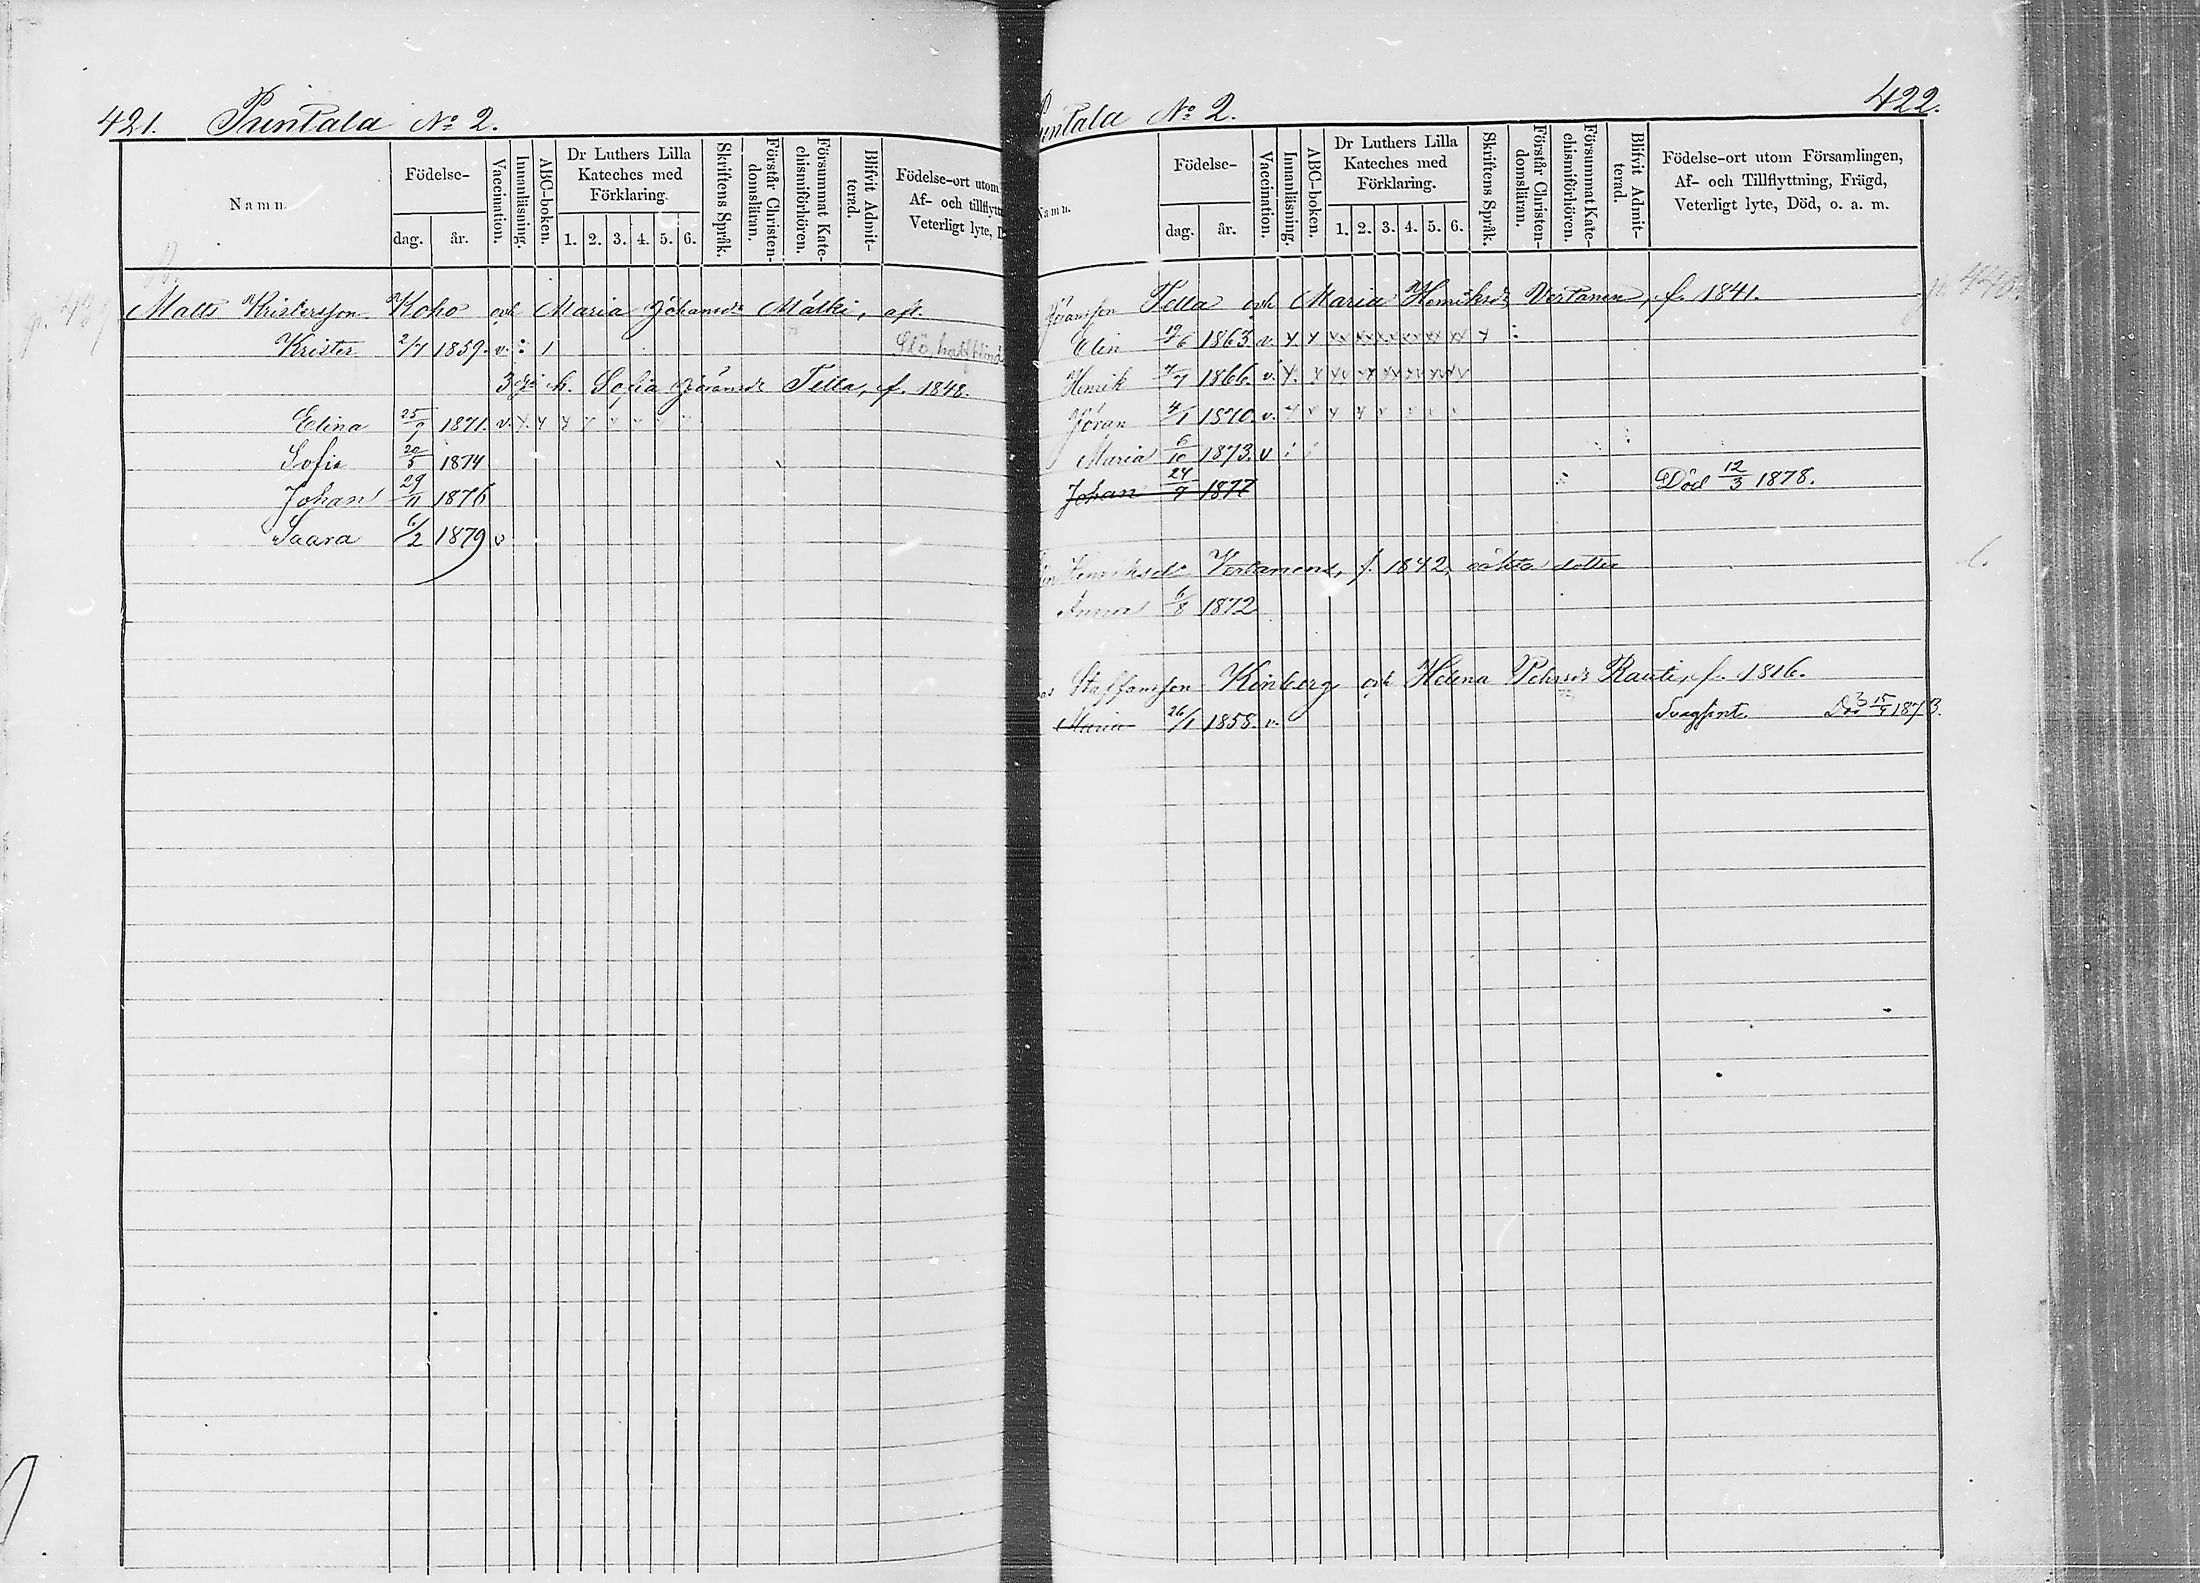 421. Puntala No 2.
Namn.
Födelse-
dag. år.
Vaccination.
Innanläsning.
ABC-boken.
Dr Luthers Lilla Kateches med Förklaring.
1. 2. 3. 4. 5. 6.
Skriftens Språk.
Förstår Christen-domsläran.
Försummat Kate-chismiförhören.
Blifvit Admit-terad.
Födelse-ort utom
Af- och tillflytt
Veterligt lyte, D
Matts Kristersson Koho och Maria Johansdr Mälki, afl.
Krister 2/7 1859. v. : 1 Slö, halfblind
3dje h. Sofia Jöransdr Tella, f. 1848.
Elina 25/9 1871. v. x x x x x x x x
Sofia 20/5 1874
Johan 29/11 1876
Saara 6/2 1879 v
422.
untala No 2.
Namn.
Födelse-
dag. år.
Vaccination.
Innanläsning.
ABC-boken.
Dr Luthers Lilla Kateches med Förklaring.
1. 2. 3. 4. 5. 6.
Skriftens Språk.
Förstår Christen-domsläran.
Försummat Kate-chismiförhören.
Blifvit Admit-terad.
Födelse-ort utom Församlingen,
Af- och Tillflyttning, Frägd,
Veterligt lyte, Död, o. a. m.
Jöransson Tella och Maria Henriksdr Vertanen, f. 1841.
Elin 1863. v. x x xx xx xx xx xx xx x :
Henrik 1866. v. x. x xx x xx xx xx xx
Jöran 4/1 1870. v. x x x x x x x x
Maria 6/10 1873. v : :
Johan 24/9 1877 Död 12/3 1878.
Henriksdr Vertanens, f. 1842, oäkta dotter
Anna 6/8 1872
Staffansson Kinberg och Helena Pehrsdr Rauti, f. 1816.
Maria 26/1 1858. v. Svagsint. Död 15/9 1873.